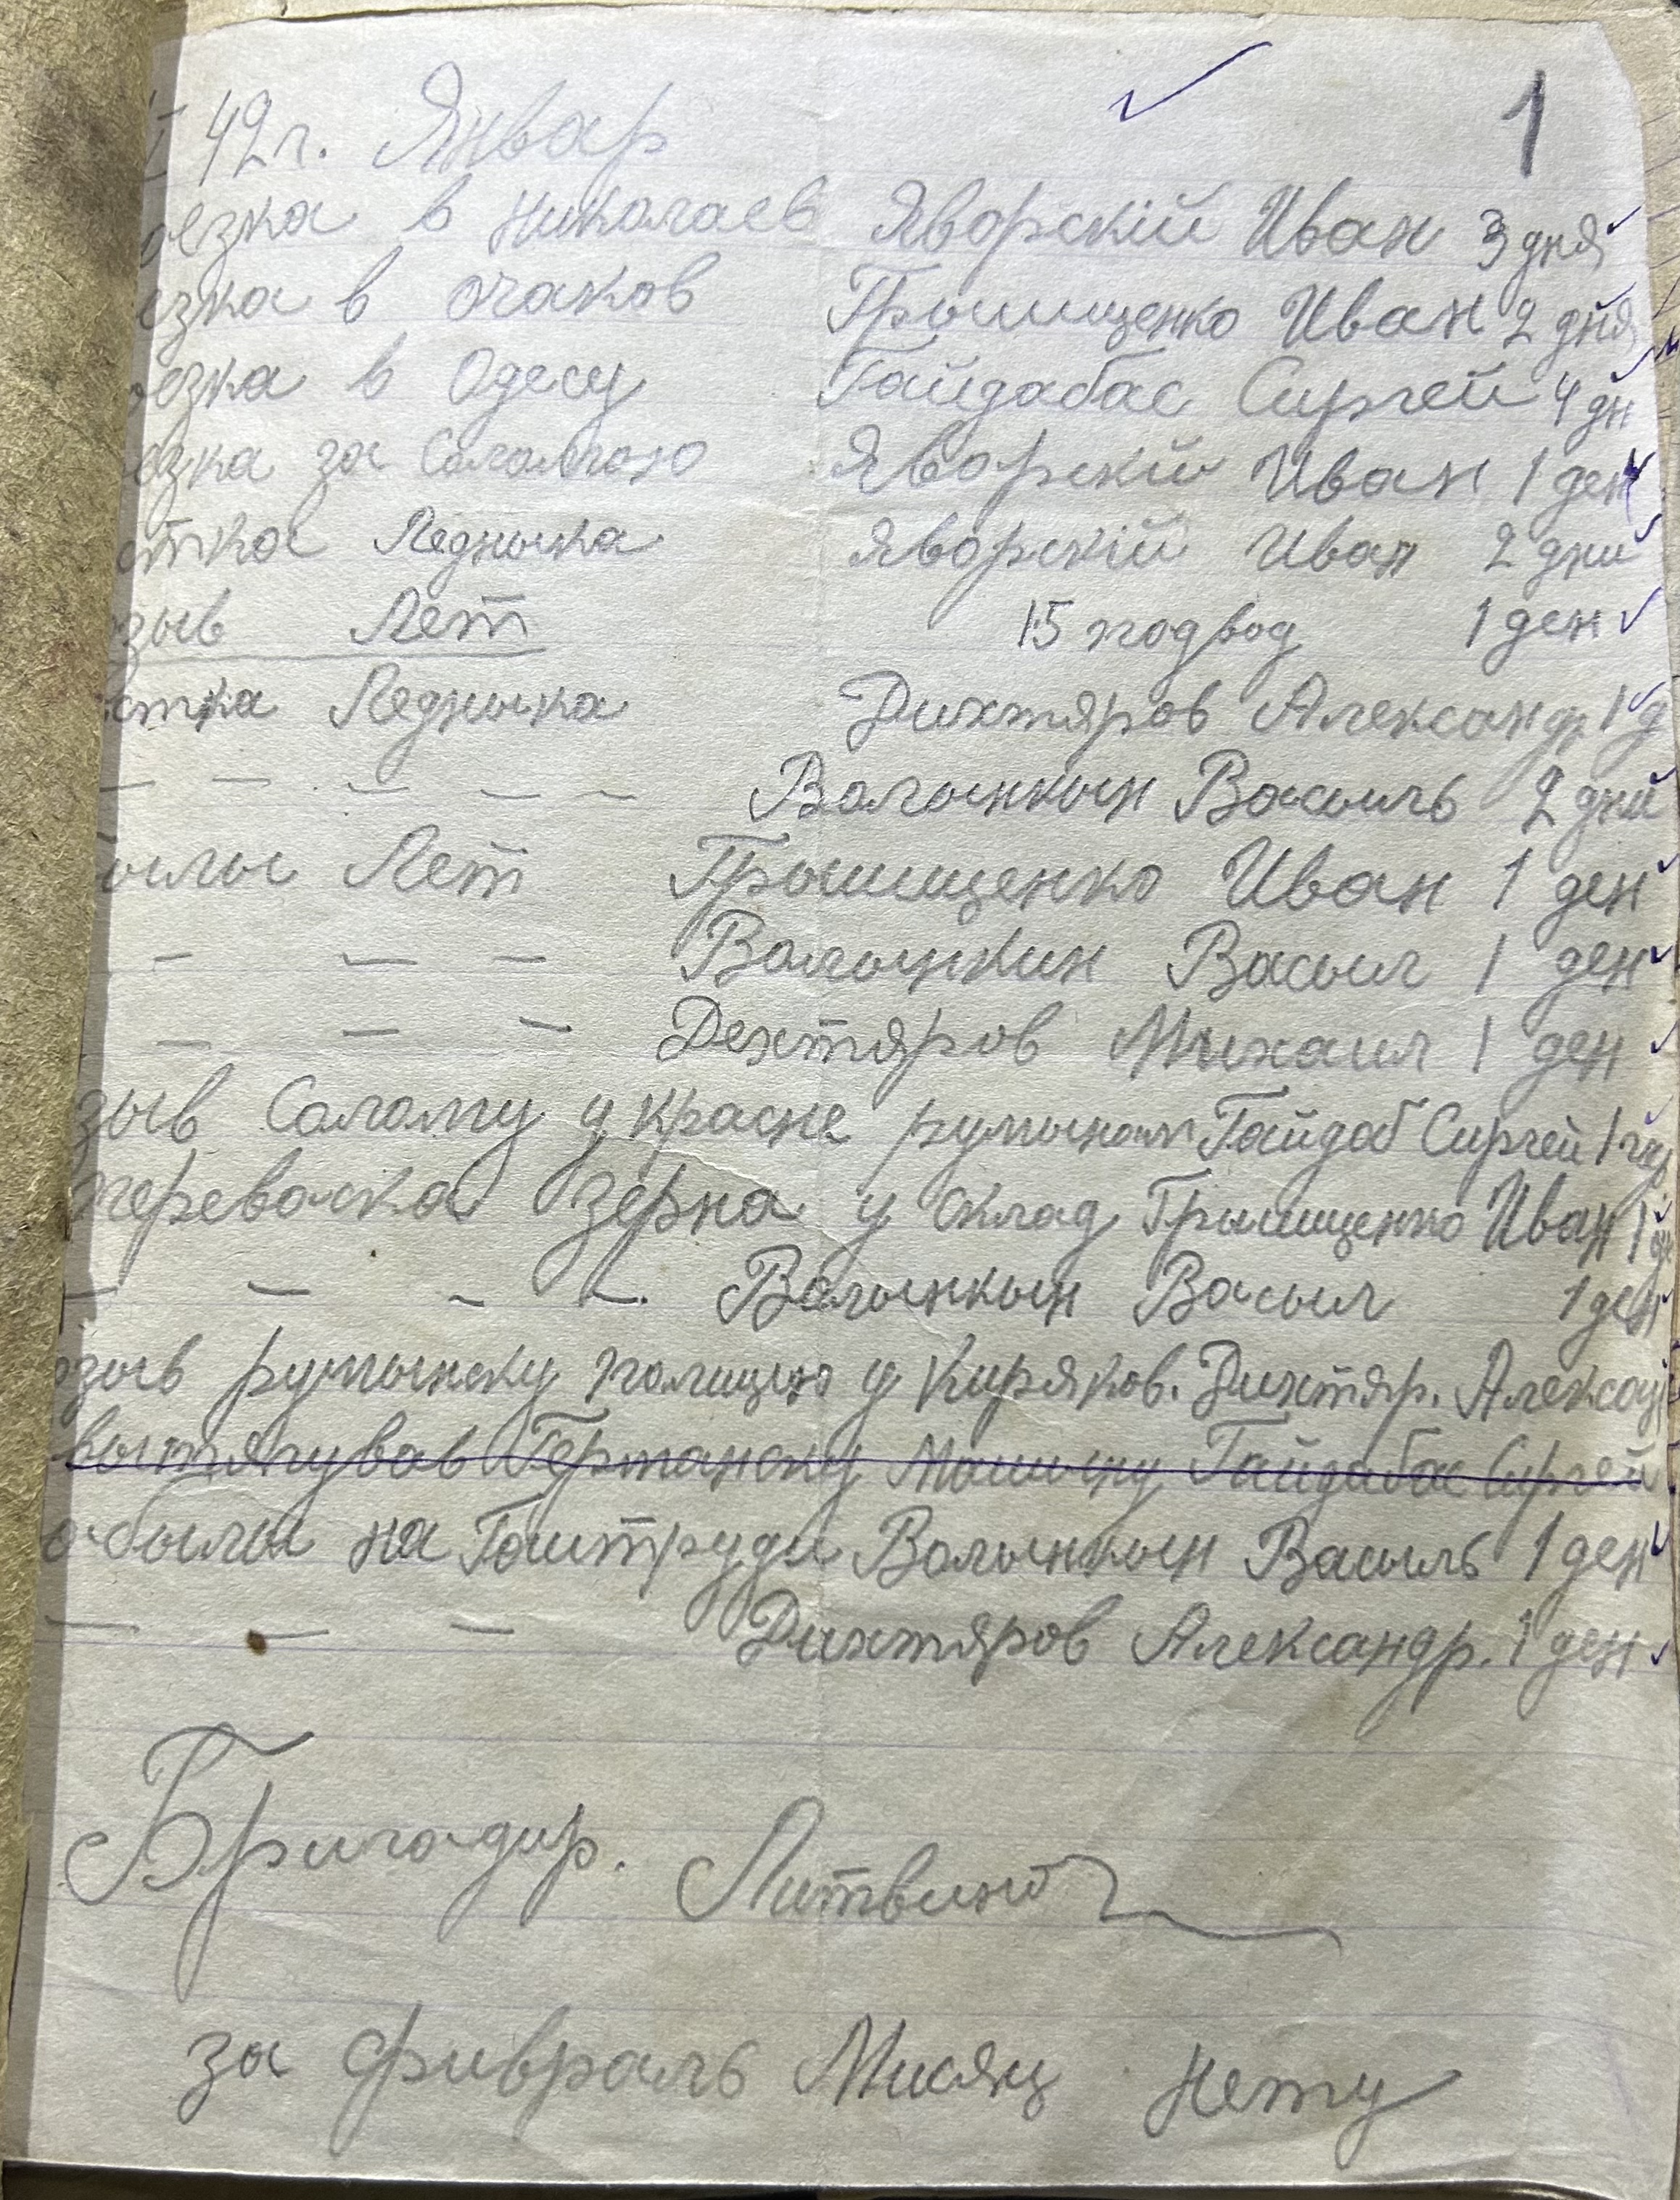 1
I 42 г. Январ
оезка в николаев Яворскій Иван 3 дня
езка в очаков Грышщенко Иван 2 дня
оезка в Одесу Гайдабас Сиргей 4 дн
оезка за Саламаю Яворскій Иван 1 ден
стка Ледныка Яворскій Иван 2 дни
озыв Лет 15 подвод 1 ден
стка Ледныка Дихтяров Александр 1 д
— — — — — Валынкын Васыль 2 дни
былы Лет Грышщенко Иван 1 ден
— — — Валынкин Васыл 1 ден
— — — Дехтяров Михаил 1 ден
зыв Саламу у красне румынам Гайдаб Сиргей 1
перевозка зерна у склад Грышщенко Иван 1 д
— — — — Валынкын Васыл 1 ден
озыв румынску полицию у Киряков. Дихтяр. Александ
вытягував Германску Машыну Гайдабас Сиргей
обылы на Гаштруди Валынкын Васыль 1 ден
— — — Дихтяров Александр. 1 ден
Бригадир. Литвино
за фивраль Мисяц Нету